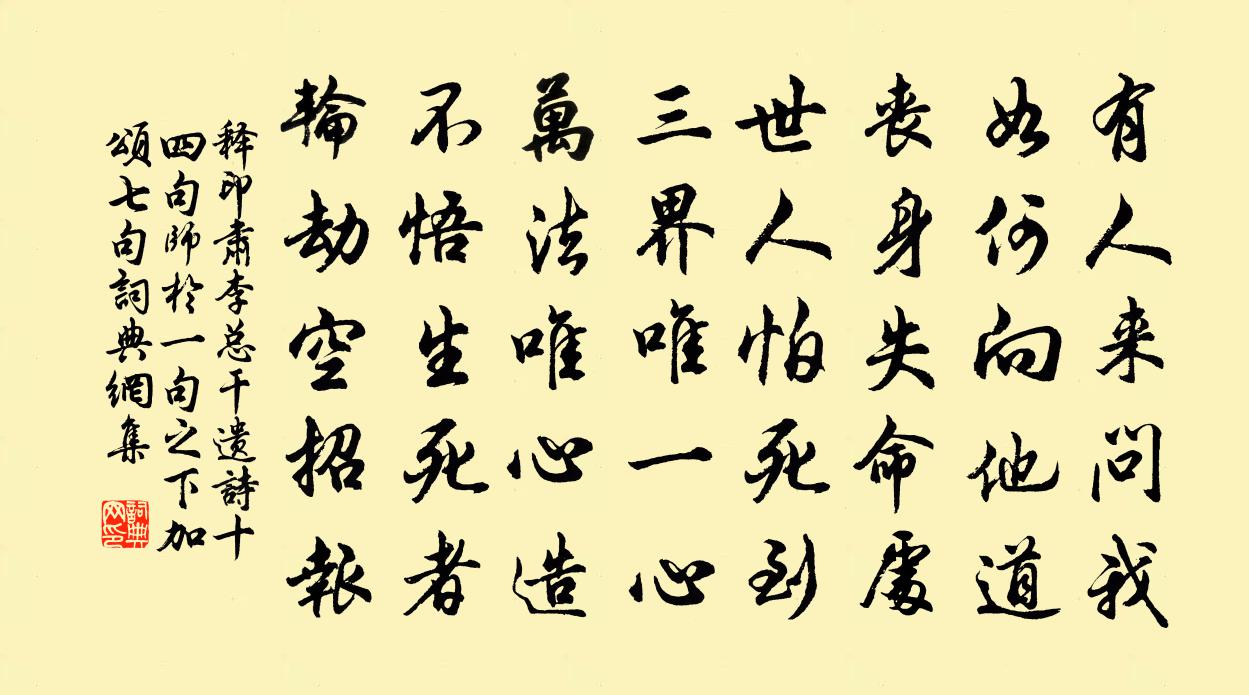 有人来问我
如何向他道
丧身失命處
世人怕死到
三界唯一心
萬法唯心造
不悟生死者
輪劫空招報
释印肃李总干遗詩十
四句師於一句之下加
頌七句詞典網集
詞典网印